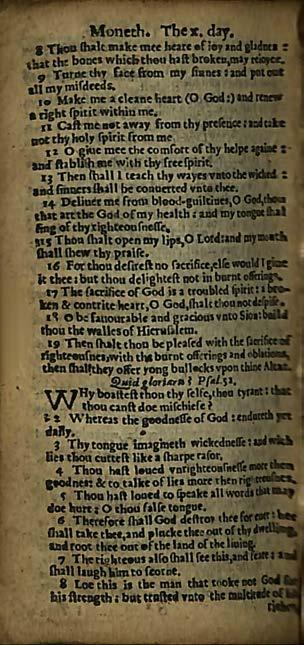 Moneth. The x. day.
8 Thou shalt make mee heare of ioy and gladnes :
that the bones which thou hast broken, may reioyce.
9 Turne thy face from my sinnes : and put out
all my misdeeds.
10 Make me a cleane heart (O God :) and renew
a right spirit within me.
11 Cast me not away from thy presence : and take
not thy holy spirit from me.
12 O giue mee the comfort of thy helpe againe :
and stablish me with thy free spirit.
13 Then shall I teach thy wayes vnto the wicked :
and sinners shall be conuerted vnto thee.
14 Deliuer me from blood-guiltines, O God, thou
that art the God of my health : and my tongue shal
sing of thy righteousnesse.
15 Thou shalt open my lips, O Lord : and my mouth
shall shew thy praise.
16 For thou desirest no sacrifice, else would I giue
it thee : but thou delightest not in burnt offerings.
17 The sacrifice of God is a troubled spirit : a bro-
ken & contrite heart, O God, shalt thou not despise.
18 O be fauourable and gracious vnto Sion : build
thou the walles of Hierusalem.
19 Then shalt thou be pleased with the sacrifice of
righteousnes, with the burnt offerings and oblations,
then shall they offer yong bullocks vpon thine Altar.
Quid gloriaris ? Psal. 52.
WHy boastest thou thy selfe, thou tyrant : that
thou canst doe mischiefe ?
2 Whereas the goodnesse of God : endureth yet
dayly.
3 Thy tongue imagineth wickednesse : and with
lies thou cuttest like a sharpe rasor.
4 Thou hast loued vnrighteousnesse more then
goodnes : & to talke of lies more then righteousnes.
5 Thou hast loued to speake all words that may
doe hurt : O thou false tongue.
6 Therefore shall God destroy thee for euer : hee
shall take thee, and plucke thee out of thy dwelling,
and root thee out of the land of the liuing.
7 The righteous also shall see this, and feare : and
shall laugh him to scorne.
8 Loe this is the man that tooke not God for
his strength : but trusted vnto the multitude of his
riches